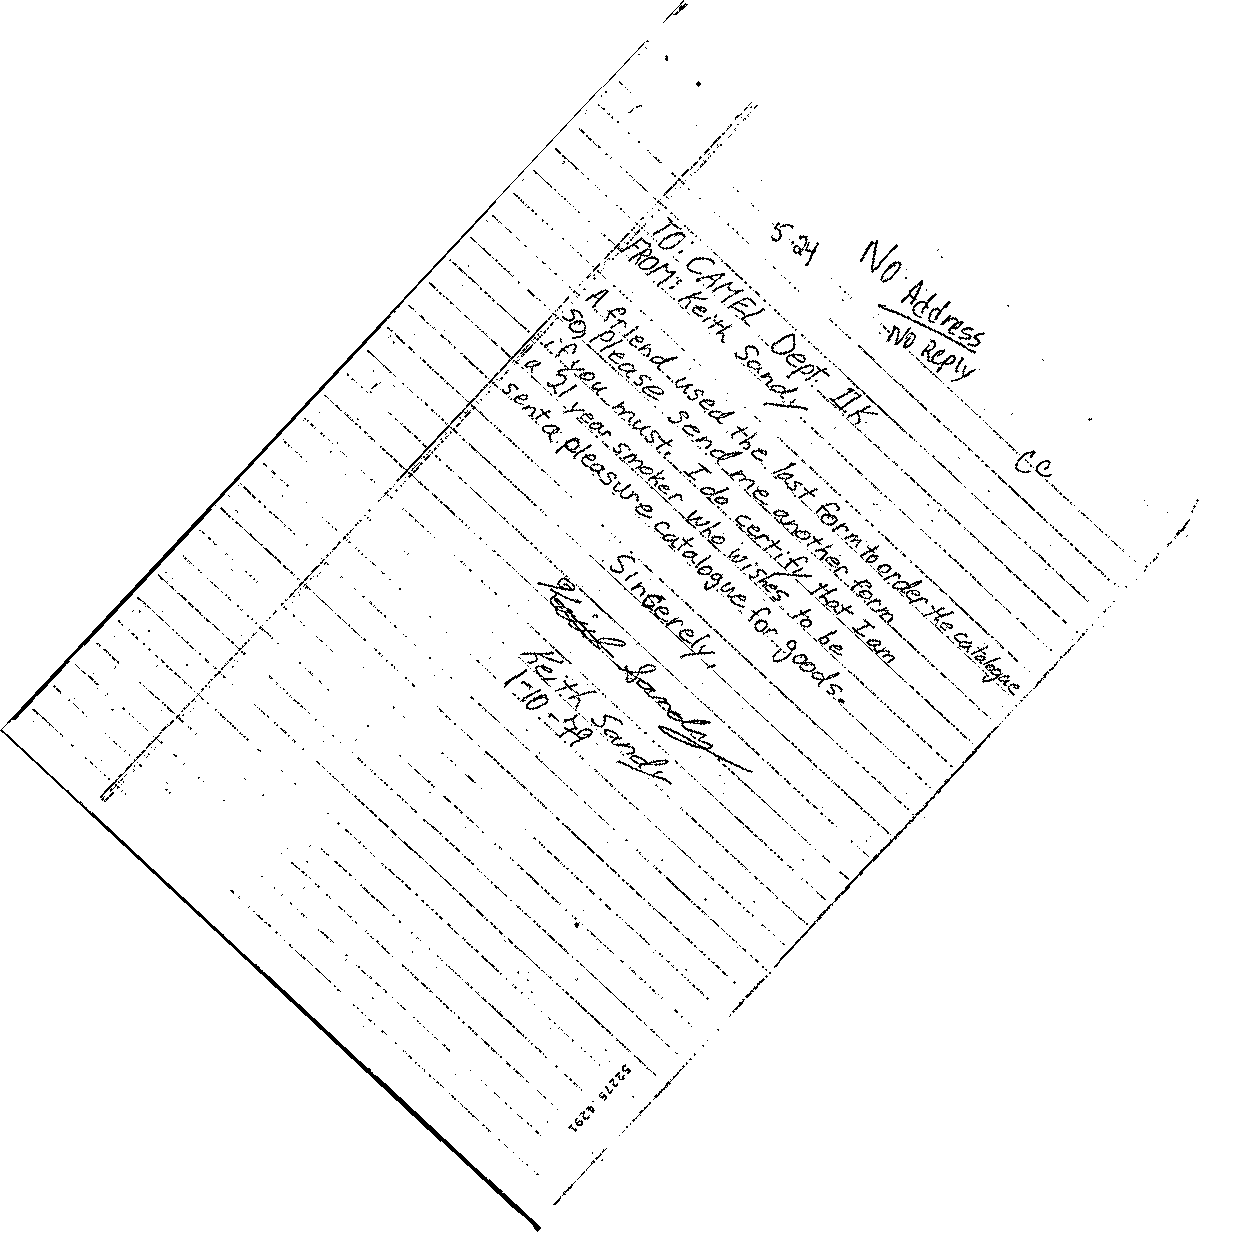 5-24
No Address
-No Reply
CC
TO: CAMEL Dept. IIK
FROM: Keith Sandy
A friend used the last form to order the catalogue
so, please send me another form
if you must. I do certify that I am
a 21 year smoker who wishes to be
sent a pleasure catalogue for goods.
Sincerely,
Keith Sandy
Keith Sandy
1-10-79
52275 4291